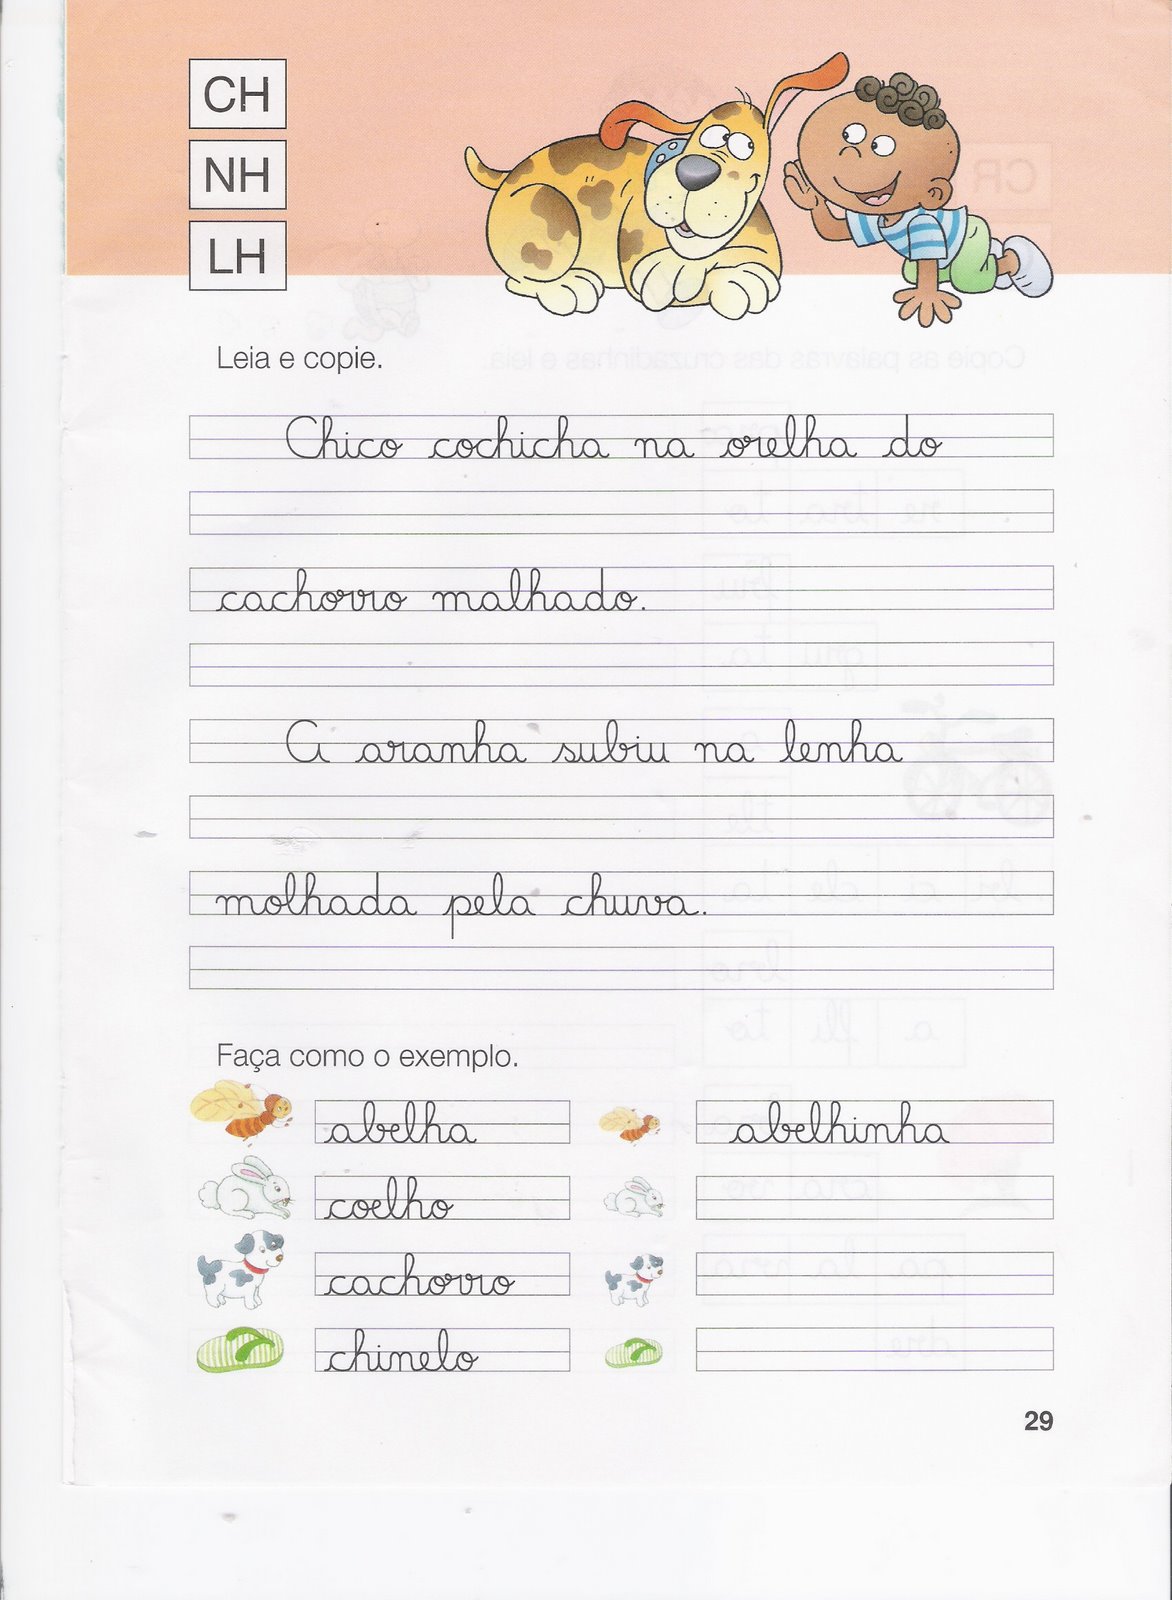 CH
NH
LH
Leia e copie.
Chico cochicha na orelha do
cachorro malhado.
A aranha subiu na lenha
molhada pela chuva.
Faça como o exemplo.
abelha abelhinha
coelho
cachorro
chinelo
29